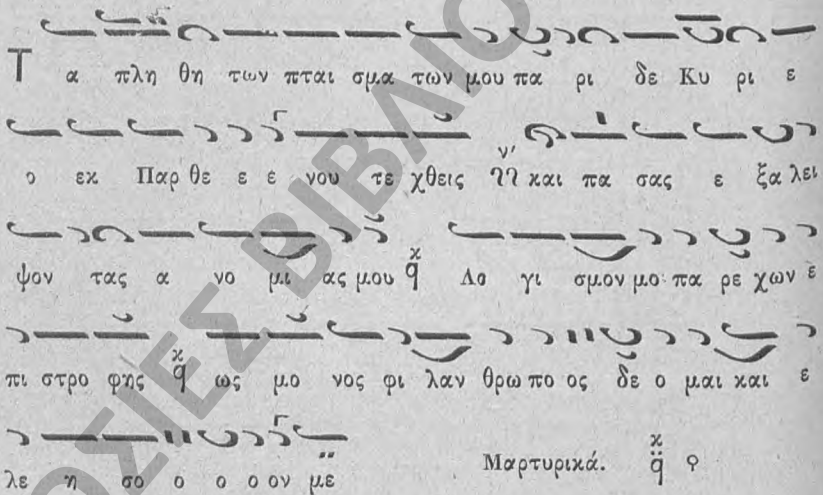 Τ α πλη θη των πται σμα των μου πα ρι δε Κυ ρι ε
ο εκ Παρ θε ε ε νου τε χθεις και πα σας ε ξα λει
ψον τας α νο μι ας μου Λο γι σμον μοι πα ρε χων ε
πι στρο φης ως μο νος φι λαν θρω πο ος δε ο μαι και ε
λε η σο ο ο ο ον με Μαρτυρικά.